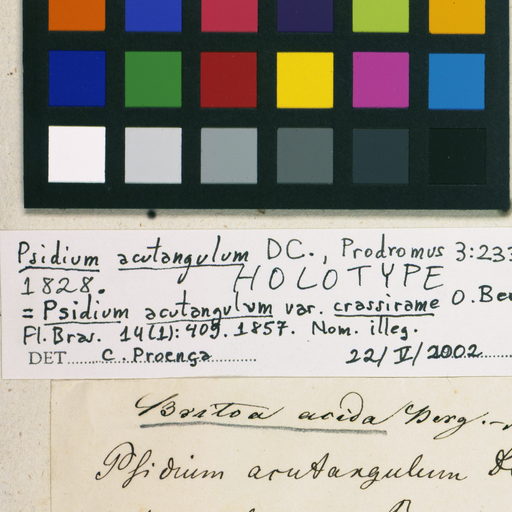 Psidium acutangulum DC., Prodromus 3:233
1828. HOLOTYPE
= Psidium acutangulum var. crassirame O. Ber
Fl. Bras. 14(1): 409. 1857. Nom. illeg.
DET. C. Proença 22/V/2002
Britoa acida Berg.
Psidium acutangulum